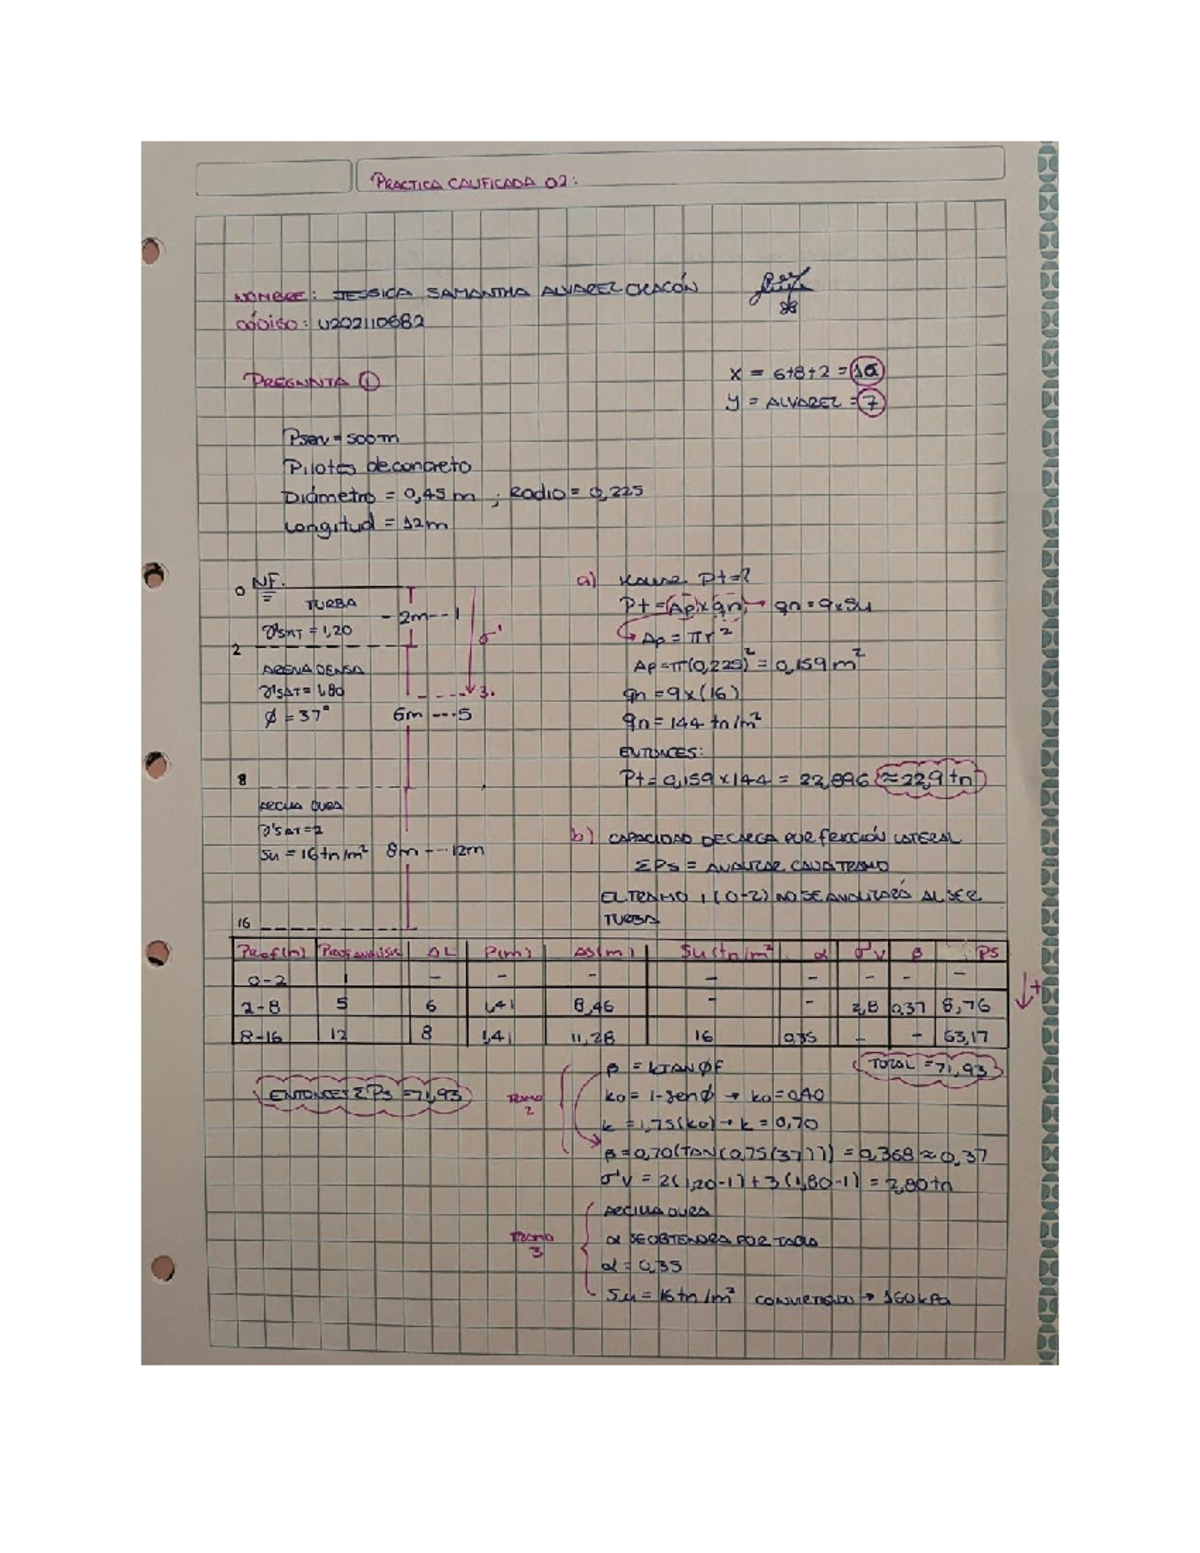 PRACTICA CALIFICADA 02:
NOMBRE: JESSICA SAMANTHA ALVAREZ CHACÓN
CÓDIGO: U202110682
PREGUNTA 1
X = 6+8+2 = 16
y = ALVAREZ = 7
Pserv = 500 tn
Pilotes de concreto
Diámetro = 0,45 m ; Radio = 0,225
Longitud = 12m
0 NF.
TURBA
γSAT = 1,20
2m --- 1
σ'
2
ARENA DENSA
γSAT = 1,80
3.
φ = 37°
6m --- 5
8
ARCILLA DURA
γSAT = 2
Su = 16 tn/m² 8m --- 12m
16
a) Pt = ?
Pt = (Ap x qn) → qn = 9 x Su
Ap = πr²
Ap = π(0,225)² = 0,159 m²
qn = 9 x (16)
qn = 144 tn/m²
ENTONCES:
Pt = 0,159 x 144 = 22,896 ≈ 22,9 tn
b) CAPACIDAD DE CARGA POR FRICCIÓN LATERAL
ΣPs = ANALIZAR CADA TRAMO
EL TRAMO 1 (0-2) NO SE ANALIZARÁ AL SER
TURBA
Prof(m) Prof análisis ΔL P(m) ΔS(m) Su(tn/m²) α σ'v β PS
0-2 1 - - - - - - - -
2-8 5 6 1,41 8,46 - - 2,8 0,37 8,76
8-16 12 8 1,41 11,28 16 0,35 - - 63,17
+
TOTAL = 71,93
ENTONCES ΣPs = 71,93
TRAMO 2
β = k TAN φF
ko = 1-sen φ → ko = 0,40
k = 1,75(ko) → k = 0,70
β = 0,70(TAN(0,75(37))) = 0,368 ≈ 0,37
σ'v = 2(1,20-1)+3(1,80-1) = 2,80 tn
TRAMO 3
ARCILLA DURA
α SE OBTENDRA POR TABLA
α = 0,35
Su = 16 tn/m² CONVIRTIENDO → 160 kPa